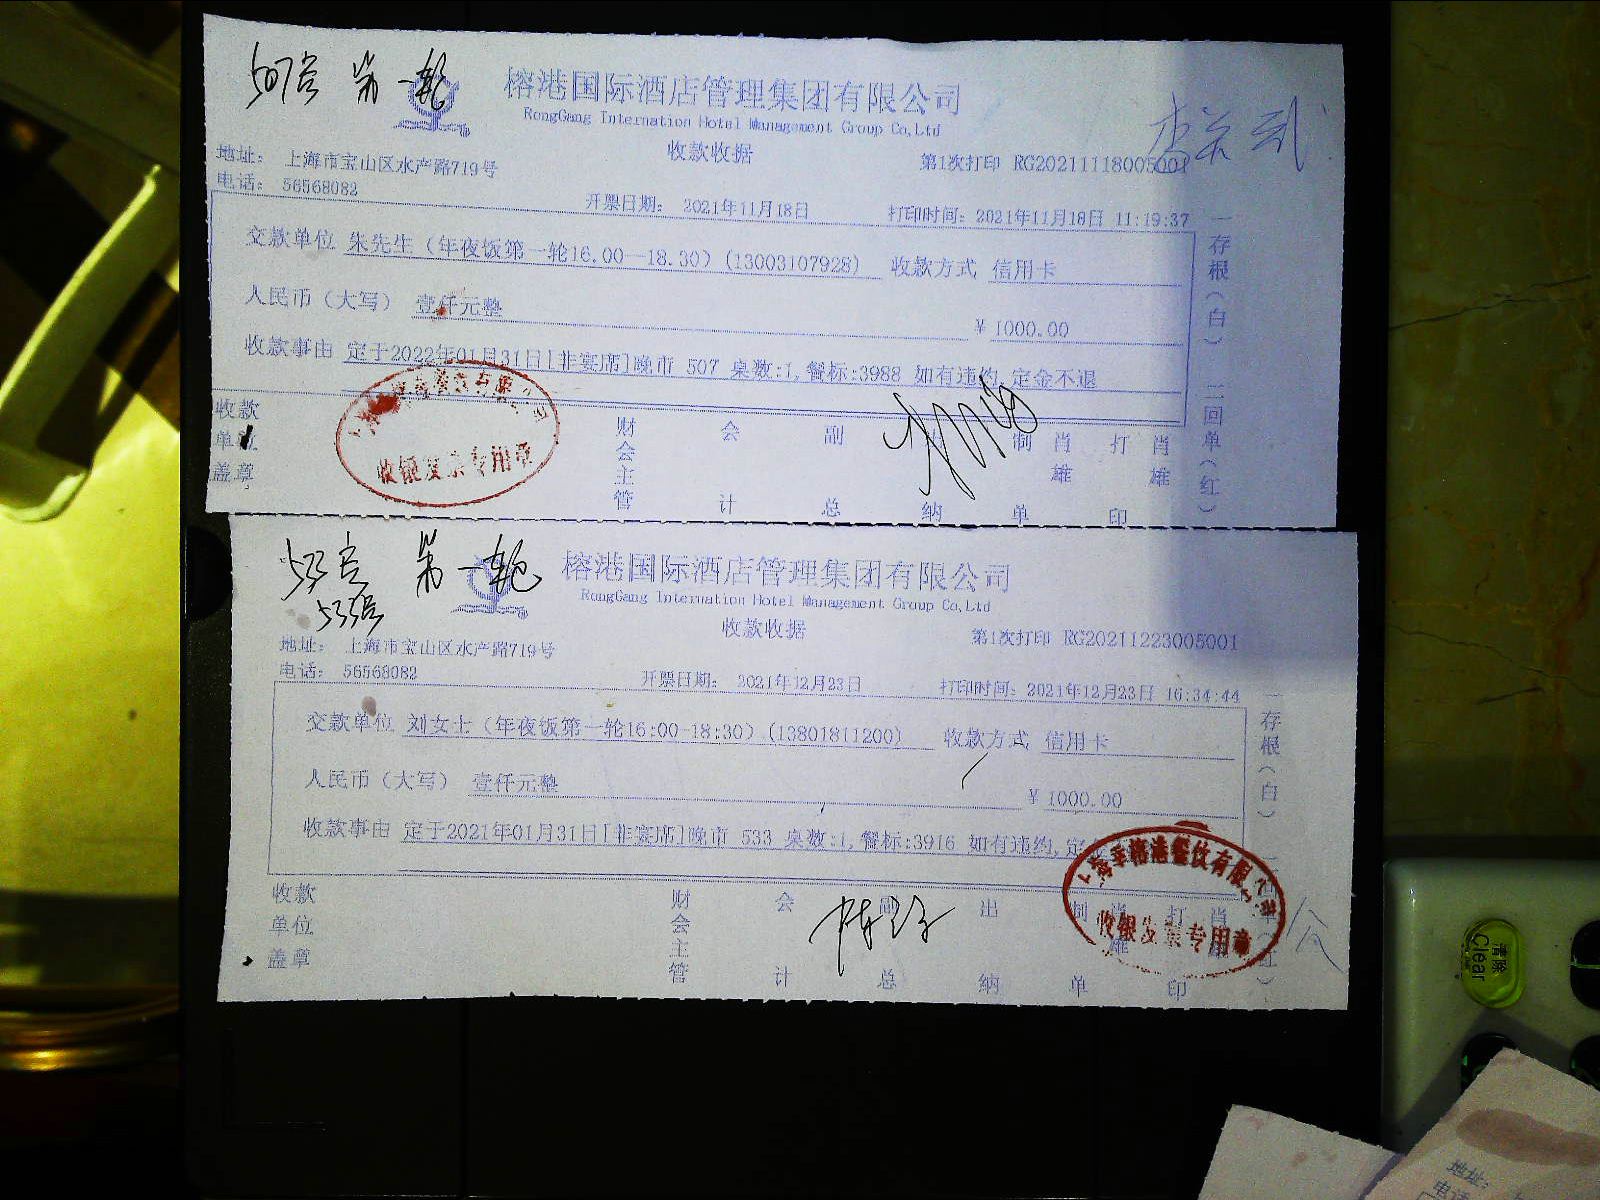 507号 第一轮
榕港国际酒店管理集团有限公司
RongGang Internation Hotel Management Group Co,Ltd
收款收据
地址： 上海市宝山区水产路719号
第1次打印 RG20211118005001
电话： 56568082
开票日期： 2021年11月18日 打印时间：2021年11月18日 11:19:37
交款单位 朱先生（年夜饭第一轮16.00--18.30）(13003107928) 收款方式 信用卡
人民币（大写） 壹仟元整 ￥1000.00
收款事由 定于2022年01月31日[非宴席]晚市 507 桌数:1,餐标:3988 如有违约,定金不退
收款单位盖章
财会主管 会计 副总 出纳 制单 肖雄 打印 肖雄
收银发票专用章
一存根（白） 二回单（红）
533号 第一轮
533号
榕港国际酒店管理集团有限公司
RongGang Internation Hotel Management Group Co,Ltd
收款收据
地址： 上海市宝山区水产路719号
第1次打印 RG20211223005001
电话： 56568082
开票日期： 2021年12月23日 打印时间：2021年12月23日 16:34:44
交款单位 刘女士（年夜饭第一轮16:00-18:30）(13801811200) 收款方式 信用卡
人民币（大写） 壹仟元整 ￥1000.00
收款事由 定于2021年01月31日[非宴席]晚市 533 桌数:1,餐标:3916 如有违约,定
收款单位盖章
财会主管 会计 副总 出纳 制单 肖雄 打印 肖
收银发票专用章
一存根（白）
清除
Clear
地址：
电